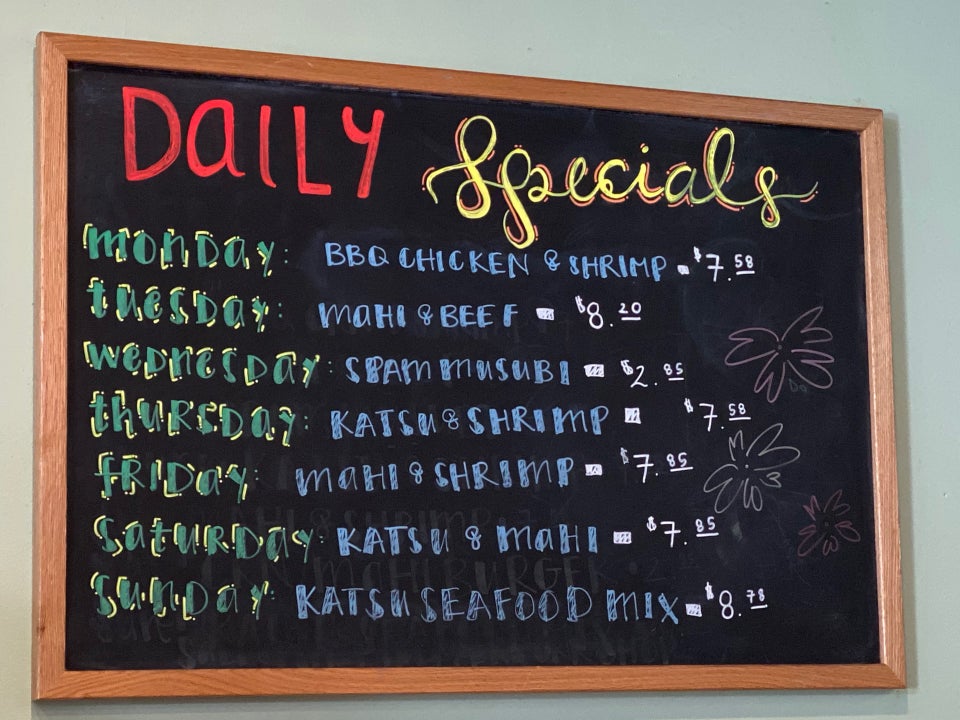 DaILY Specials
monday: BBQ CHICKEN & SHRIMP - $7.58
tuesday: maHI & BEEF - $8.20
wednesday: SPAM MUSUBI - $2.85
thursday: KATSU & SHRIMP - $7.58
FRIDay: maHI & SHRIMP - $7.85
SaTURDay: KATSU & maHI - $7.85
SUNDay: KATSU SEAFOOD MIX - $8.78